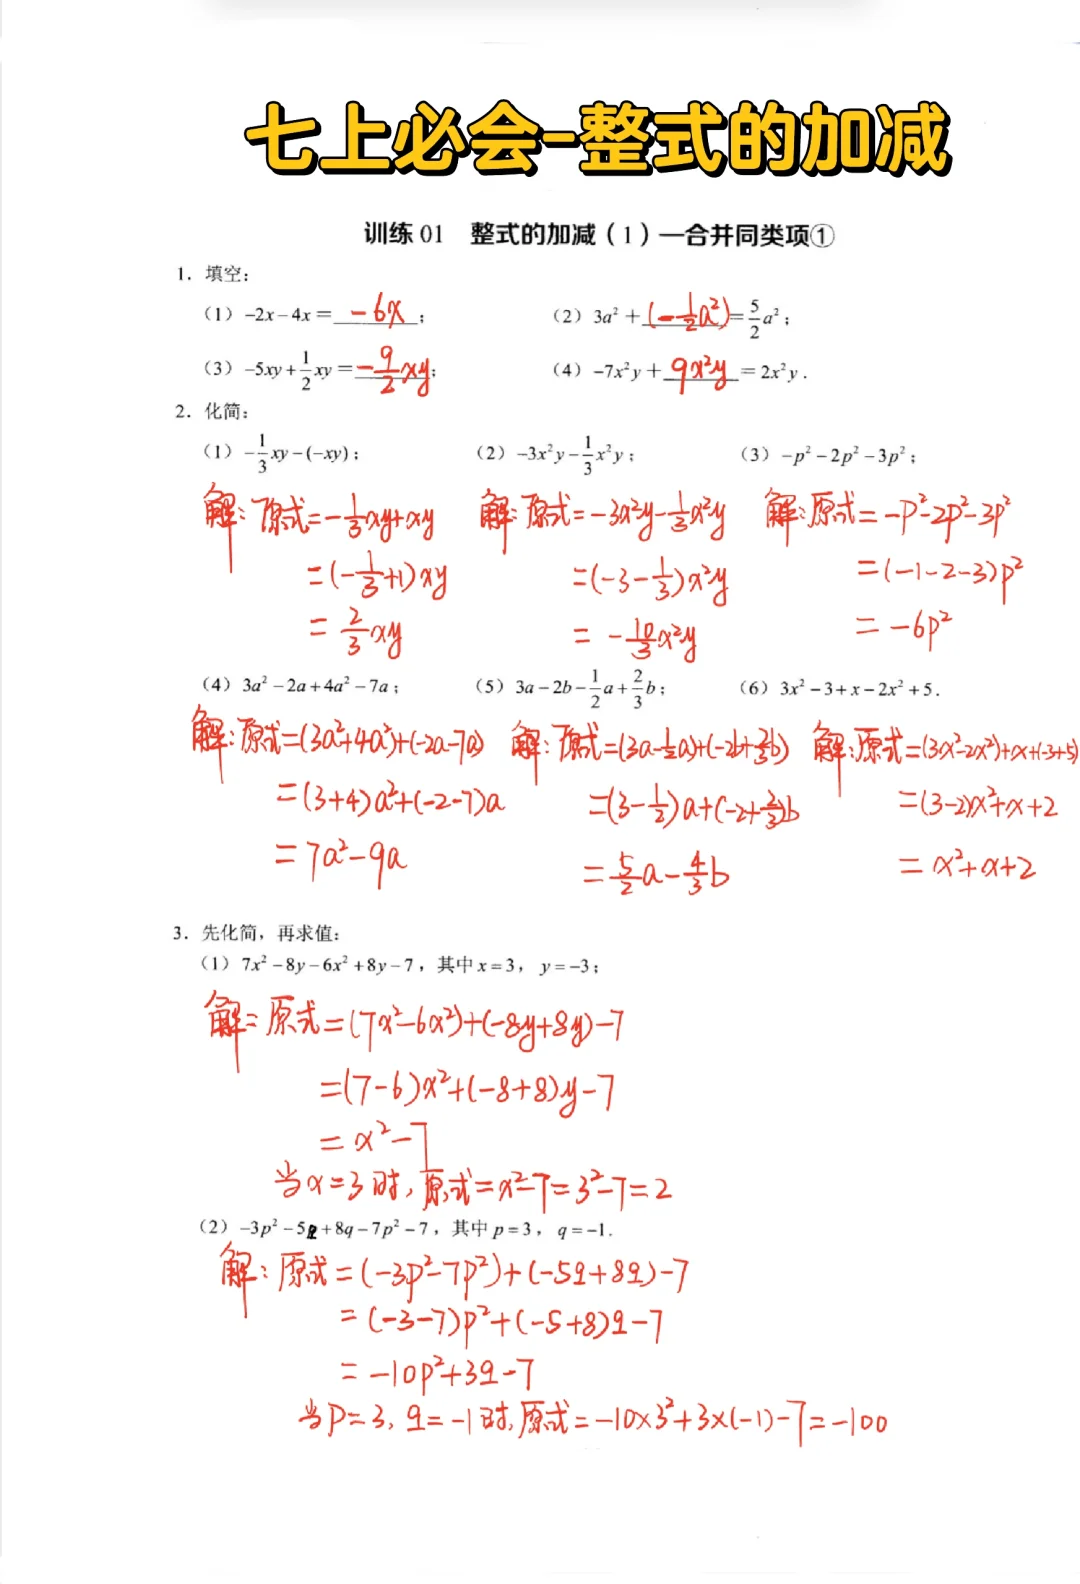 七上必会-整式的加减
训练 01 整式的加减（1）—合并同类项①
1. 填空：
（1）-2x-4x=-6x；
（2）3a²+(-1/2a²)=5/2a²；
（3）-5xy+1/2xy=-9/2xy；
（4）-7x²y+9x²y=2x²y．
2. 化简：
（1）-1/3xy-(-xy)；
（2）-3x²y-1/3x²y；
（3）-p²-2p²-3p²；
解：原式=-1/3xy+xy
=(-1/3+1)xy
=2/3xy
解：原式=-3x²y-1/3x²y
=(-3-1/3)x²y
=-10/3x²y
解：原式=-p²-2p²-3p²
=(-1-2-3)p²
=-6p²
（4）3a²-2a+4a²-7a；
（5）3a-2b-1/2a+2/3b；
（6）3x²-3+x-2x²+5．
解：原式=(3a²+4a²)+(-2a-7a)
=(3+4)a²+(-2-7)a
=7a²-9a
解：原式=(3a-1/2a)+(-2b+2/3b)
=(3-1/2)a+(-2+2/3)b
=5/2a-4/3b
解：原式=(3x²-2x²)+x+(-3+5)
=(3-2)x²+x+2
=x²+x+2
3. 先化简，再求值：
（1）7x²-8y-6x²+8y-7，其中x=3，y=-3；
解：原式=(7x²-6x²)+(-8y+8y)-7
=(7-6)x²+(-8+8)y-7
=x²-7
当x=3时，原式=x²-7=3²-7=2
（2）-3p²-5q+8q-7p²-7，其中p=3，q=-1．
解：原式=(-3p²-7p²)+(-5q+8q)-7
=(-3-7)p²+(-5+8)q-7
=-10p²+3q-7
当p=3，q=-1时，原式=-10×3²+3×(-1)-7=-100